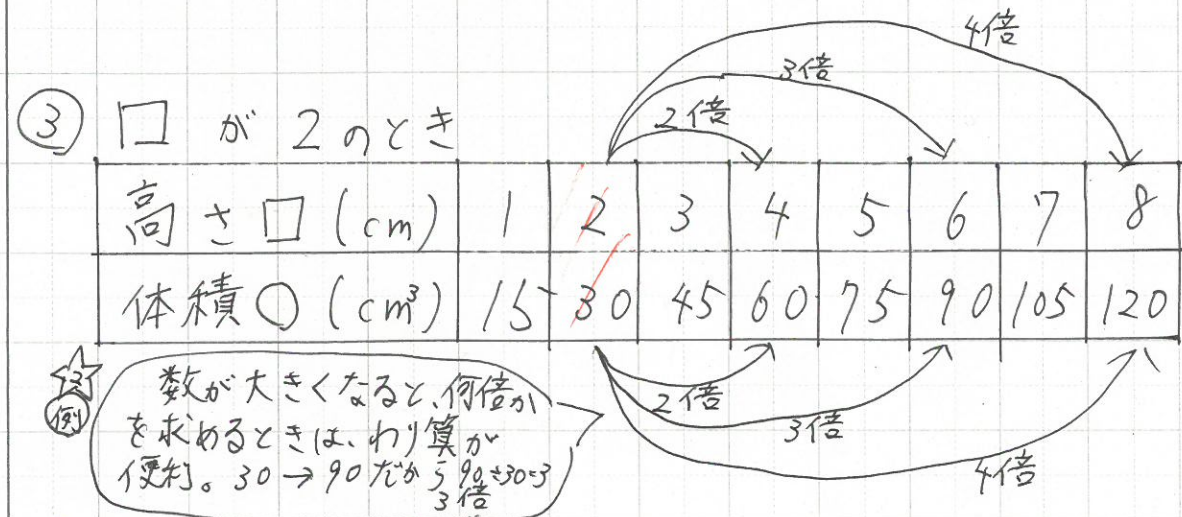 4倍
3倍
2倍
③ □ が 2 のとき
高さ□(cm) 1 2 3 4 5 6 7 8
体積○(cm³) 15 30 45 60 75 90 105 120
2倍
3倍
4倍
例
数が大きくなると、何倍か
を求めるときは、わり算が
便利。30→90だから90÷30=3
3倍